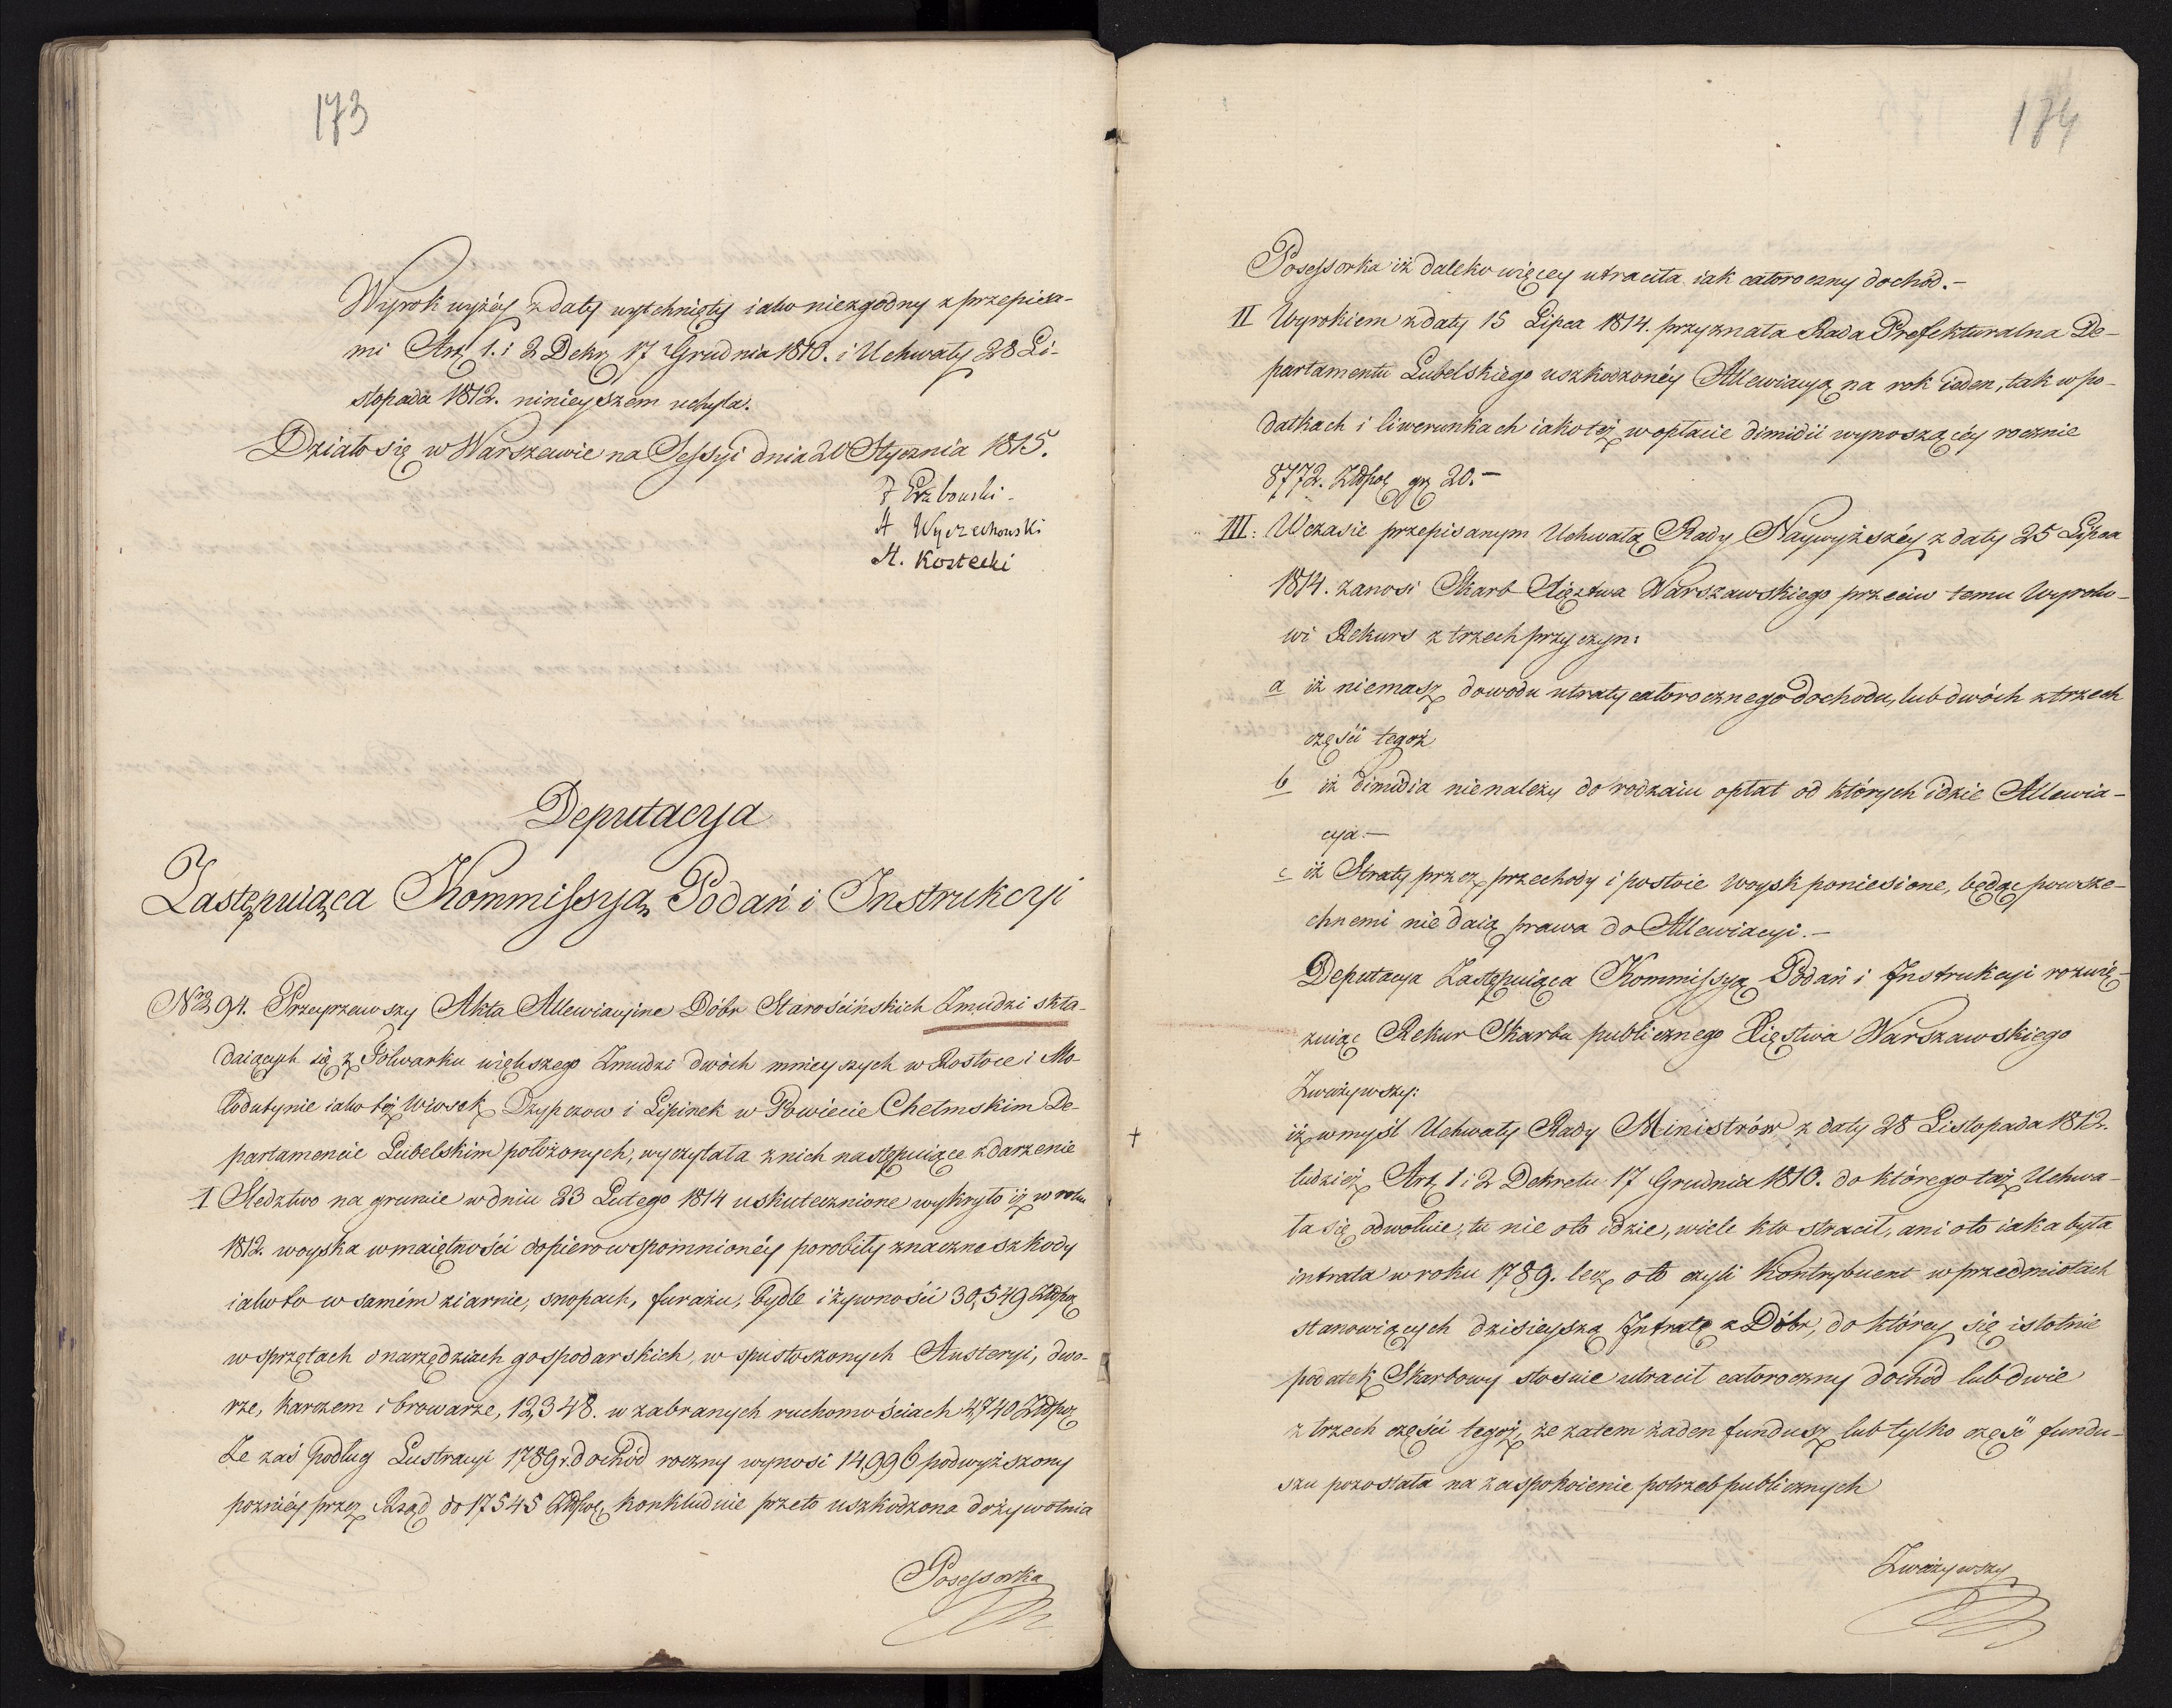 173
Wyrok wyżéy z daty wytchnięty iako niezgodny z przepisa-
mi Art. 1. i 2 Dekr. 17 Grudnia 1810. i Uchwały 28 Li-
stopada 1812. ninieyszem uchyla.
Działo się w Warszawie na Sessyi dnia 20 Stycznia 1815.
A Wyczechowski
A. Kostecki
Deputacya
Zastępuiąca Kommissyą Podań i Instrukcyi
Nro 94. Przeyrzawszy Akta Allewiacyine Dóbr Starościńskich Żmudzi skła-
daiących się z Folwarku większego Żmudzi dwóch mnieyszych w Rostoce i Mo-
łodutynie iako téż Wiosek Dzypczow i Lipinek w Powiecie Chełmskim De-
partamencie Lubelskim położonych, wyczytała z nich następuiące zdarzenie
I Sledztwo na gruncie w dniu 23 Lutego 1814 uskutecznione wykryło iż w roku
1812. woyska w maiętności dopiero wspomnionéy porobiły znaczne szkody
iako to w samém ziarnie, snopach, furażu, bydle i żywności 30,549 Złpol
w sprzętach i narzędziach gospodarskich, w spustoszonych Austeryi, dwo-
rze, karczem i browarze, 12,348. w zabranych ruchomościach 4,740 Złpol
Ze zaś podług Lustracyi 1789 r. dochód roczny wynosi 14,996 podwyższony
poznićy przez Rząd do 17545 Złpol, konkluduie przeto uszkodzona dożywotnia
Posessorka
174
Posessorka iż daleko więcey utraciła iak całoroczny dochód.-
II Wyrokiem z daty 15 Lipca 1814. przyznała Rada Prefekturalna De-
partamentu Lubelskiego uszkodzonéy Allewiacyą na rok ieden, tak w po-
datkach i liwerunkach iako też w opłacie dimidii wynoszącéy rocznie
8772. Złpol gr 20.-
III: W czasie przepisanym Uchwałą Rady Naywyższéy z daty 25 Lipca
1814. zanosi Skarb Xięztwa Warszawskiego przeciw temu Wyroko-
wi Rekurs z trzech przyczyn:
a iż niemasz dowodu utraty całorocznego dochodu, lub dwóch z trzech
części tegoż
b iż dimidia nie należy do rodzaiu opłat od których idzie Allewia-
cya.-
c iż Straty przez przechody i postoie woysk poniesione, będąc powsze-
chnemi nie daią prawa do Allewiacyi.-
Deputacya Zastępuiąca Kommissyą Podań i Instrukcyi rozwią-
zuiąc Rekur Skarbu publicznego Xięstwa Warszawskiego
Zważywszy:
iż w myśl Uchwały Rady Ministrów z daty 28 Listopada 1812.
tudzież Art. 1 i 2 Dekretu 17 Grudnia 1810. do którego taż Uchwa-
ła się odwołuie, tu nie o to idzie, wiele kto stracił, ani o to iaka była
intrata w roku 1789. lecz o to czyli Kontrybuent w przedmiotach
stanowiących dzisieyszą Intratę z Dóbr, do którey się istotnie
podatek Skarbowy stosuie utracił całoroczny dochód lub dwie
z trzech części tegoż, że zatem żaden fundusz lub tylko część fundu-
szu pozostała na zaspokoienie potrzeb publicznych
Zważywszy